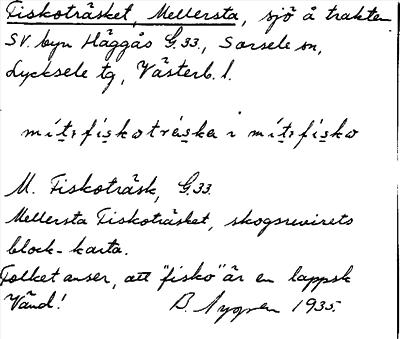 Fiskoträsket, Mellersta, sjö å trakten
SV. byn Häggås G.33., Sorsele sn,
Lycksele tg, Västerb. l.
M. Fiskoträsk, G.33.
Mellersta Fiskoträsket, skogsrevirets
block-karta.
Folket anser, att "fisko" är en lappsk
Vänd! B. Nygren 1935.